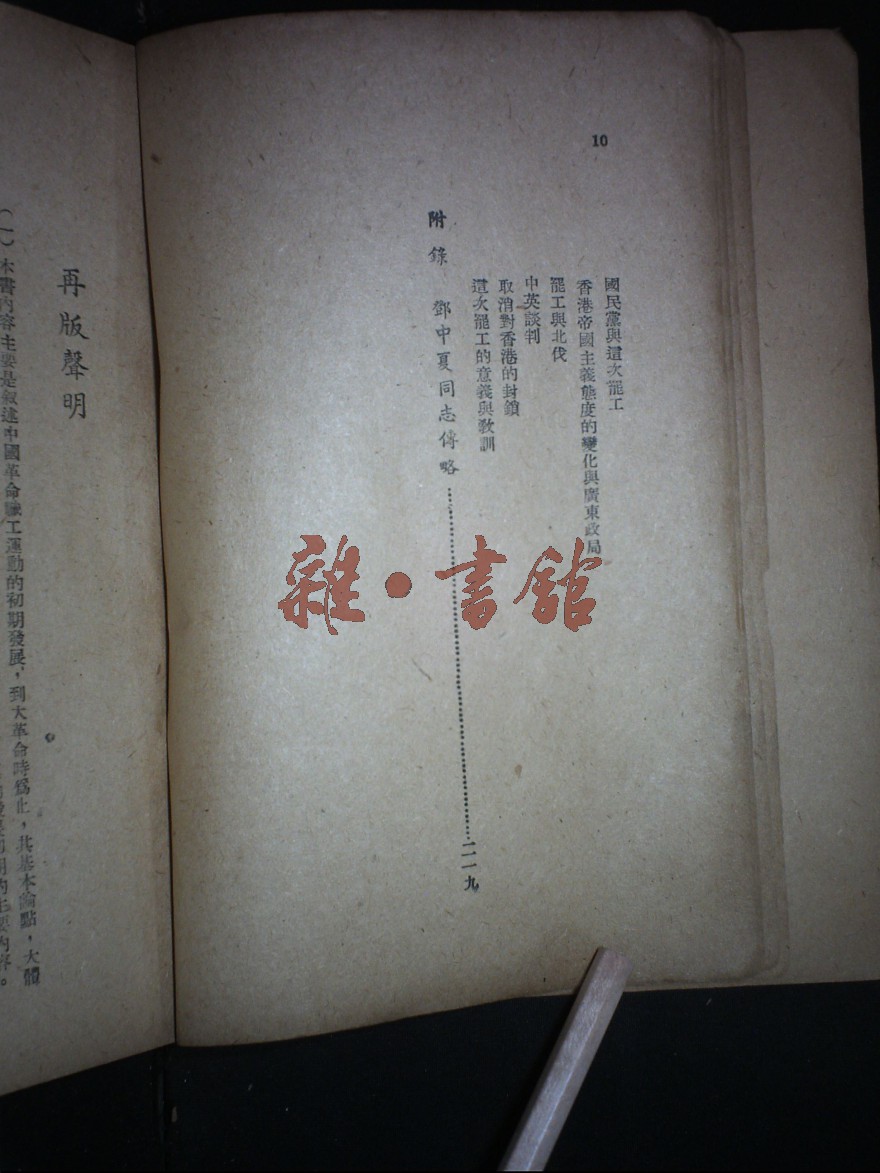 10
國民黨與這次罷工
香港帝國主義態度的變化與廣東政局
罷工與北伐
中英談判
取消對香港的封鎖
這次罷工的意義與教訓
附錄 鄧中夏同志傳略……二一九
雜·書館
再版聲明
(一)本書內容主要是叙述中國革命職工運動的初期發展,到大革命時爲止,其基本論點,大體